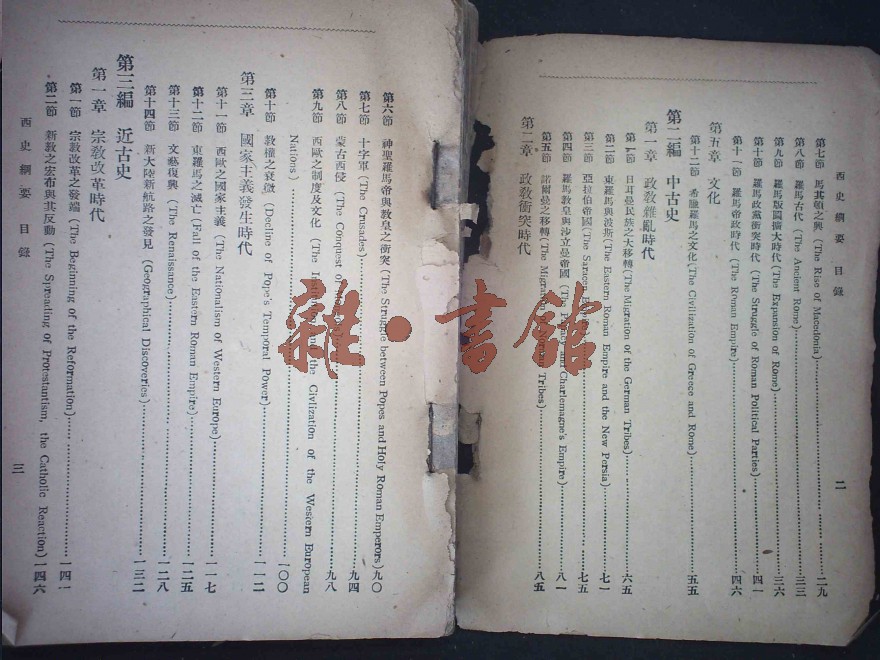 西史綱要 目錄
二
第七節 馬其頓之興 (The Rise of Macedonia) 二九
第八節 羅馬古代 (The Ancient Rome) 三三
第九節 羅馬版圖擴大時代 (The Expansion of Rome) 三六
第十節 羅馬政黨衝突時代 (The Struggle of Roman Political Parties) 四一
第十一節 羅馬帝政時代 (The Roman Empire) 四六
第五章 文化
第十二節 希臘羅馬之文化 (The Civilization of Greece and Rome) 五五
第二編 中古史
第一章 政敎雜亂時代
第一節 日耳曼民族之大移轉 (The Migration of the German Tribes) 六五
第二節 東羅馬與波斯 (The Eastern Roman Empire and the New Persia) 七一
第三節 亞拉伯帝國 (The Saracen 七五
第四節 羅馬敎皇與沙立曼帝國 (The Papacy and Charlemagne's Empire) 八一
第五節 諾爾曼之移轉 (The Migration Tribes) 八五
第二章 政敎衝突時代
第六節 神聖羅馬帝與敎皇之衝突 (The Struggle between Popes and Holy Roman Emperors) 九〇
第七節 十字軍 (The Crusades) 九四
第八節 蒙古西侵 (The Conquest of 九八
第九節 西歐之制度及文化 (The and the Civilization of the Western European
Nations) 一〇〇
第十節 敎權之衰微 (Decline of Pope's Temporal Power) 一一二
第三章 國家主義發生時代
第十一節 西歐之國家主義 (The Nationalism of Western Europe) 一一七
第十二節 東羅馬之滅亡 (Fall of the Eastern Roman Empire) 一二五
第十三節 文藝復興 (The Renaissance) 一二八
第十四節 新大陸新航路之發見 (Geographical Discoveries) 一三二
第三編 近古史
第一章 宗敎改革時代
第一節 宗敎改革之發端 (The Beginning of the Reformation) 一四一
第二節 新敎之宏布與其反動 (The Spreading of Protestantism, the Catholic Reaction) 一四六
西史綱要 目錄
三
雜·書館